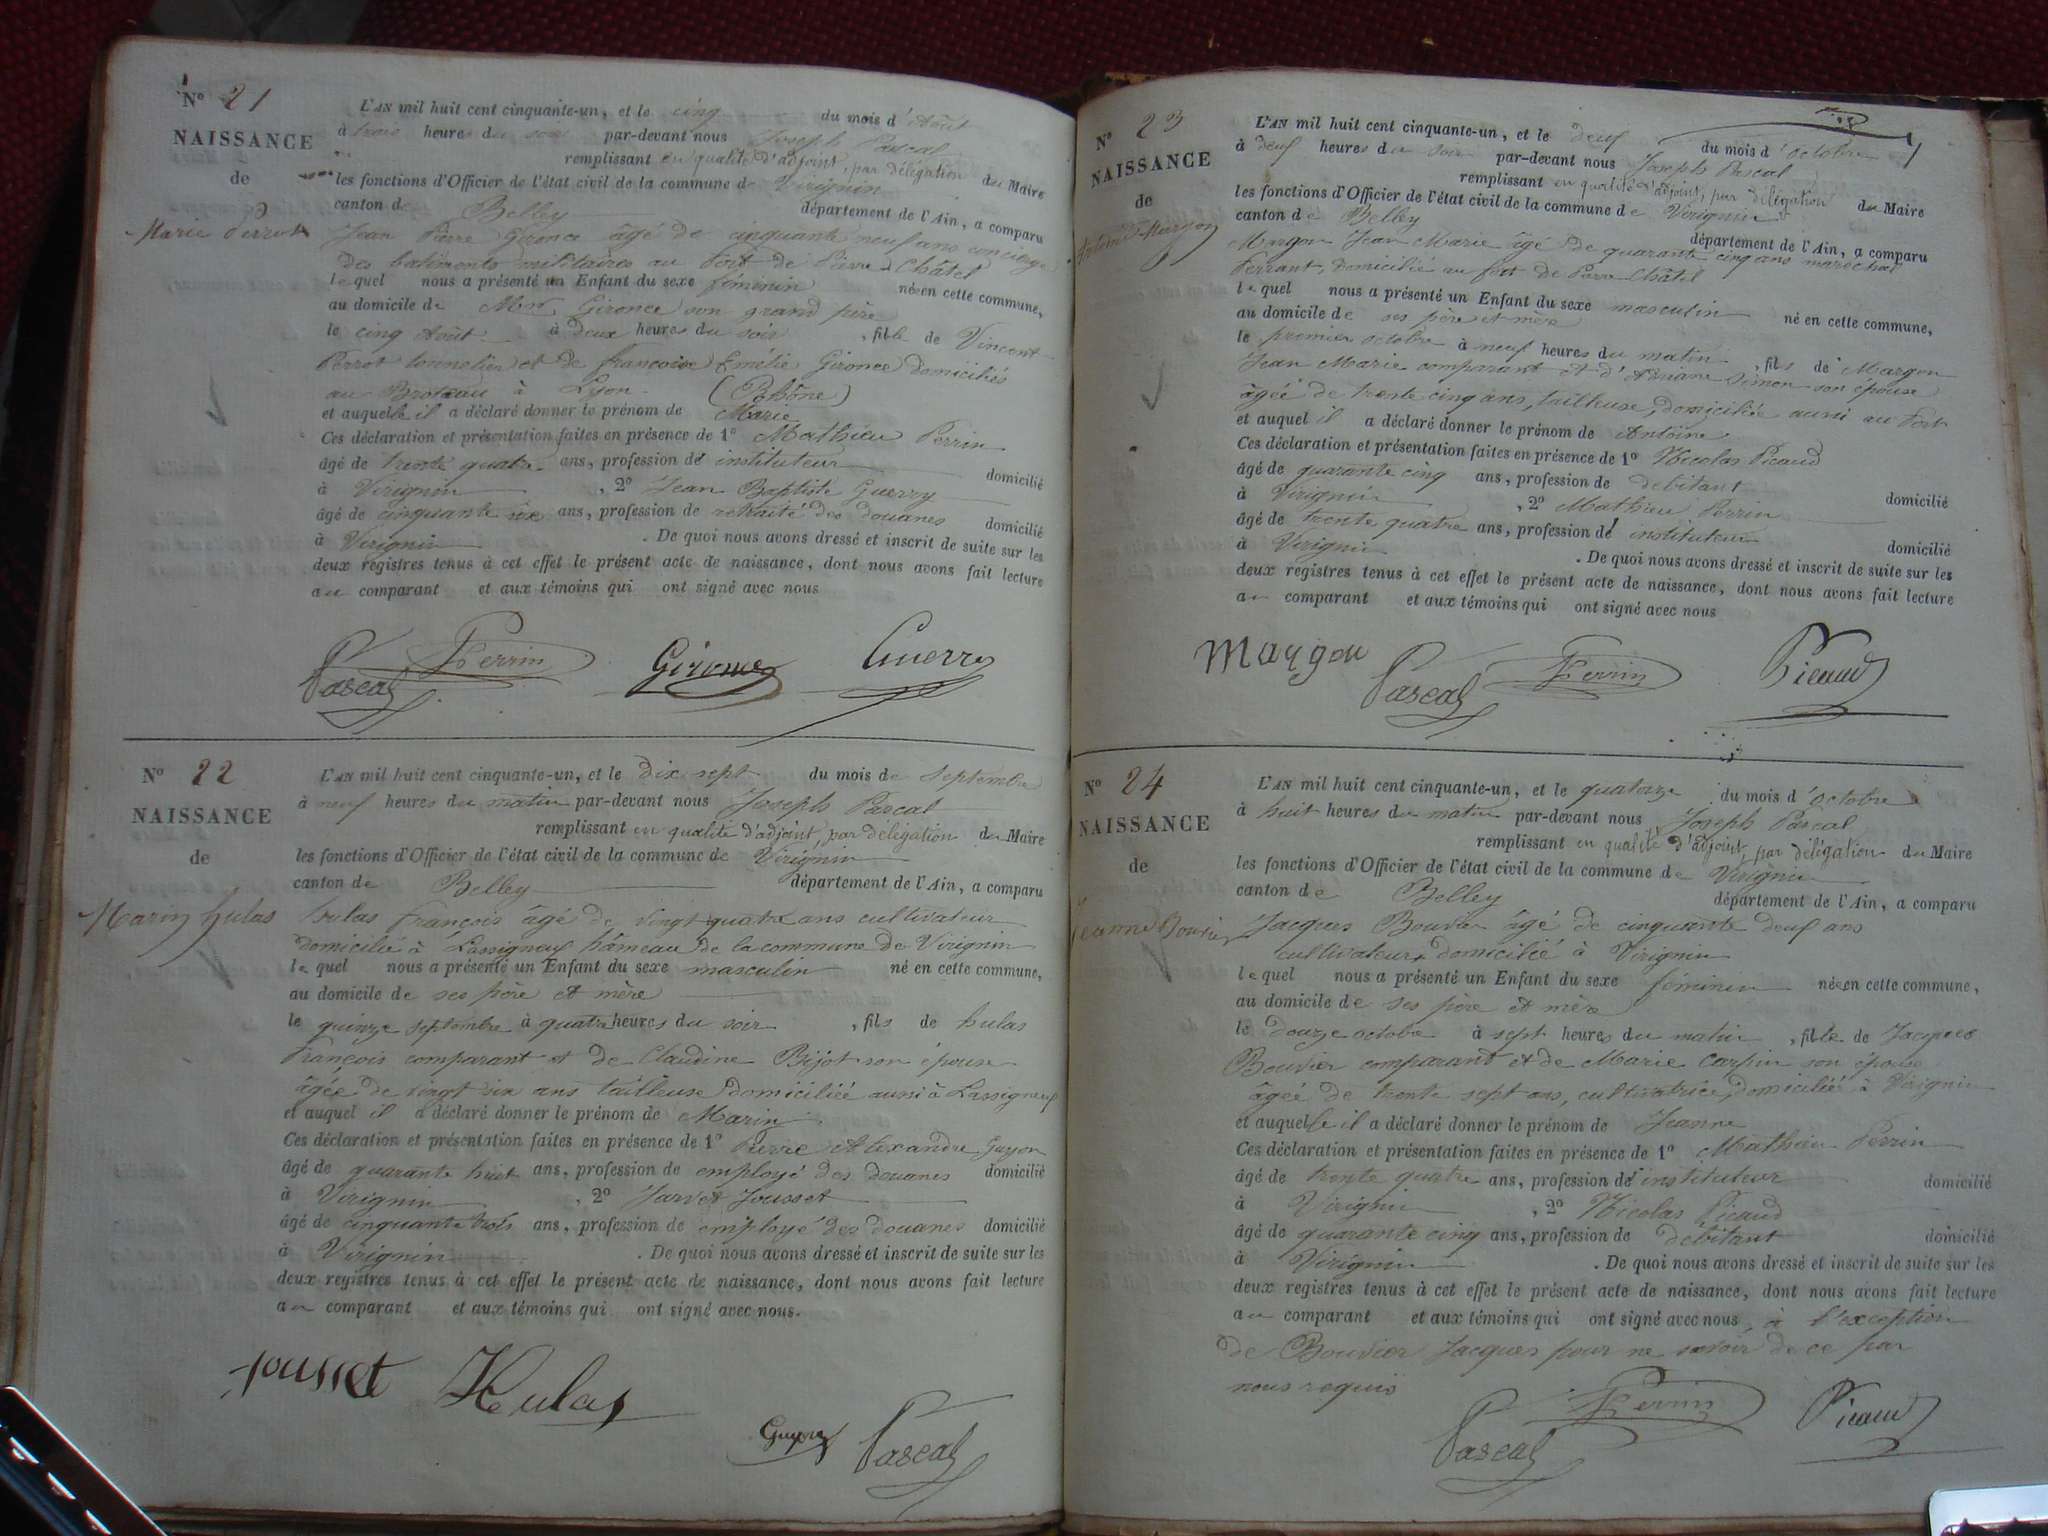 N° 21
NAISSANCE
de
Marie Perrot
L'AN mil huit cent cinquante-un, et le cinq du mois d'Août
à trois heures du soir par-devant nous Joseph Pascal
remplissant en qualité d'adjoint, par délégation du Maire
les fonctions d'Officier de l'état civil de la commune de Virignin
canton de Belley département de l'Ain, a comparu
Jean Pierre Gironce âgé de cinquante neuf ans concierge
des batiments militaires au fort de Pierre Châtel
lequel nous a présenté un Enfant du sexe féminin née en cette commune,
au domicile de Mr Gironce son grand père
le cinq Août à deux heures du soir, fille de Vincent
Perrot tonnelier et de françoise Emélie Gironce domiciliés
au Broteau à Lyon (Rhône)
et auquelle il a déclaré donner le prénom de Marie
Ces déclaration et présentation faites en présence de 1° Mathieu Perrin
âgé de trente quatre ans, profession de instituteur domicilié
à Virignin, 2° Jean Baptiste Guerry
âgé de cinquante six ans, profession de retraité des douanes domicilié
à Virignin. De quoi nous avons dressé et inscrit de suite sur les
deux registres tenus à cet effet le présent acte de naissance, dont nous avons fait lecture
au comparant et aux témoins qui ont signé avec nous
Pascal Perrin Gironce Guerry
N° 22
NAISSANCE
de
Marin hulas
L'AN mil huit cent cinquante-un, et le dix sept du mois de Septembre
à neuf heures du matin par-devant nous Joseph Pascal
remplissant en qualité d'adjoint, par délégation du Maire
les fonctions d'Officier de l'état civil de la commune de Virignin
canton de Belley département de l'Ain, a comparu
hulas françois âgé de vingt quatre ans cultivateur
domicilié à Lassigneux hâmeau de la commune de Virignin
lequel nous a présenté un Enfant du sexe masculin né en cette commune,
au domicile de ses père et mère
le quinze septembre à quatre heures du soir, fils de hulas
françois comparant et de Claudine Bijot son épouse
âgée de vingt six ans tailleuse domiciliée aussi à Lassigneux
et auquel il a déclaré donner le prénom de Marin
Ces déclaration et présentation faites en présence de 1° Pierre Alexandre Guyon
âgé de quarante huit ans, profession de employé des douanes domicilié
à Virignin, 2° Jousset
âgé de cinquante trois ans, profession de employé des douanes domicilié
à Virignin. De quoi nous avons dressé et inscrit de suite sur les
deux registres tenus à cet effet le présent acte de naissance, dont nous avons fait lecture
au comparant et aux témoins qui ont signé avec nous.
Jousset Hulas Guyon Pascal
N° 23
NAISSANCE
de
Antoine Margon
L'AN mil huit cent cinquante-un, et le deux du mois d'octobre
à deux heures du soir par-devant nous Joseph Pascal
remplissant en qualité d'adjoint, par délégation du Maire
les fonctions d'Officier de l'état civil de la commune de Virignin
canton de Belley département de l'Ain, a comparu
Margon Jean Marie âgé de quarante cinq ans maréchal
ferrant, domicilié au fort de Pierre Châtel
lequel nous a présenté un Enfant du sexe masculin né en cette commune,
au domicile de ses père et mère
le premier octobre à neuf heures du matin, fils de Margon
Jean Marie comparant et d'Ariane Simon son épouse
âgée de trente cinq ans, tailleuse, domiciliée aussi au fort
et auquel il a déclaré donner le prénom de Antoine
Ces déclaration et présentation faites en présence de 1° Nicolas Picaud
âgé de quarante cinq ans, profession de débitant domicilié
à Virignin, 2° Mathieu Perrin
âgé de trente quatre ans, profession d'instituteur domicilié
à Virignin. De quoi nous avons dressé et inscrit de suite sur les
deux registres tenus à cet effet le présent acte de naissance, dont nous avons fait lecture
au comparant et aux témoins qui ont signé avec nous
Margon Pascal Perrin Picaud
N° 24
NAISSANCE
de
Jeanne Bouvier
L'AN mil huit cent cinquante-un, et le quatorze du mois d'octobre
à huit heures du matin par-devant nous Joseph Pascal
remplissant en qualité d'adjoint par délégation du Maire
les fonctions d'Officier de l'état civil de la commune de Virignin
canton de Belley département de l'Ain, a comparu
Jacques Bouvier âgé de cinquante deux ans
cultivateur domicilié à Virignin
lequel nous a présenté un Enfant du sexe féminin née en cette commune,
au domicile de ses père et mère
le douze octobre à sept heures du matin, fille de Jacques
Bouvier comparant et de Marie Carpin son épouse
âgée de trente sept ans, cultivatrice, domiciliée à Virignin
et auquelle il a déclaré donner le prénom de Jeanne
Ces déclaration et présentation faites en présence de 1° Mathieu Perrin
âgé de trente quatre ans, profession d'instituteur domicilié
à Virignin, 2° Nicolas Picaud
âgé de quarante cinq ans, profession de débitant domicilié
à Virignin. De quoi nous avons dressé et inscrit de suite sur les
deux registres tenus à cet effet le présent acte de naissance, dont nous avons fait lecture
au comparant et aux témoins qui ont signé avec nous, à l'exception
de Bouvier Jacques pour ne savoir de ce par
nous requis
Pascal Perrin Picaud